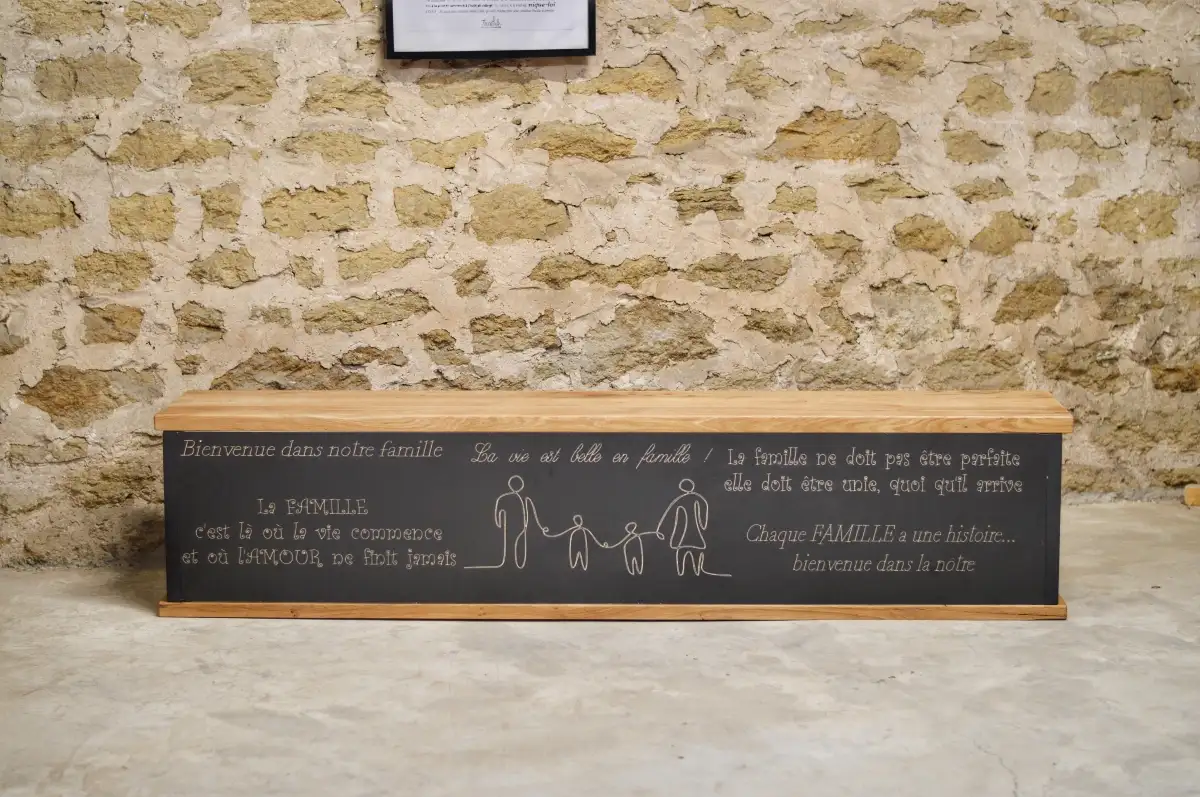 nique-toi
Bienvenue dans notre famille
La FAMILLE
c'est là où la vie commence
et où l'AMOUR ne finit jamais
La vie est belle en famille !
La famille ne doit pas être parfaite
elle doit être unie, quoi qu'il arrive
Chaque FAMILLE a une histoire...
bienvenue dans la notre